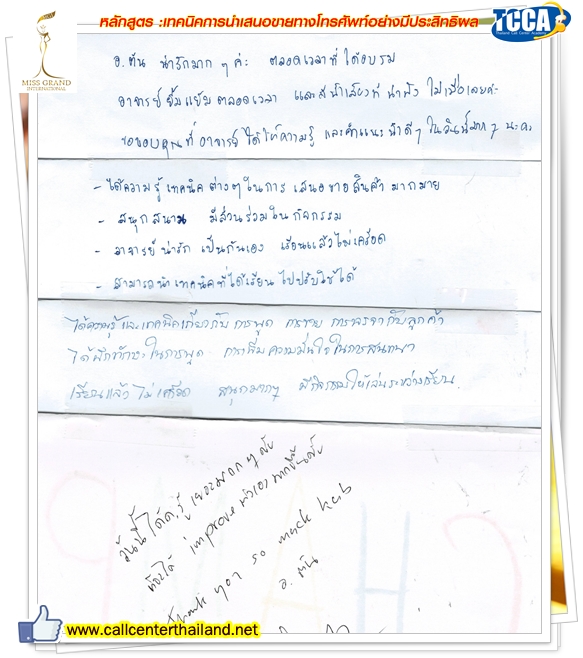 หลักสูตร :เทคนิคการนำเสนอขายทางโทรศัพท์อย่างมีประสิทธิผล
TCCA
Thailand Call Center Academy
MISS GRAND
INTERNATIONAL
อ.ต้น น่ารักมาก ๆ ค่ะ ตลอดเวลาที่ได้อบรม
อาจารย์ยิ้มแย้มตลอดเวลา และมีน้ำเสียงที่น่าฟัง ไม่เบื่อเลยค่ะ
ขอขอบคุณที่อาจารย์ได้ให้ความรู้ และคำแนะนำดีๆ ในวันนี้มาก ๆ นะคะ
- ได้ความรู้ เทคนิคต่างๆในการ เสนอขายสินค้า มากมาย
- สนุกสนาน มีส่วนร่วมในกิจกรรม
- อาจารย์น่ารัก เป็นกันเอง เรียนแล้วไม่เครียด
- สามารถนำเทคนิคที่ได้เรียน ไปปรับใช้ได้
ได้ความรู้และเทคนิคเกี่ยวกับ การพูด การขาย การเจรจากับลูกค้า
ได้ฝึกทักษะในการพูด การเพิ่มความมั่นใจในการสนทนา
เรียนแล้วไม่เครียด สนุกมากๆ มีกิจกรรมให้เล่นระหว่างเรียน
วันนี้ได้ความรู้เยอะมากๆ ครับ
improve ตัวเองมากขึ้นครับ
Thank you so much krub
อ. ต้น
www.callcenterthailand.net